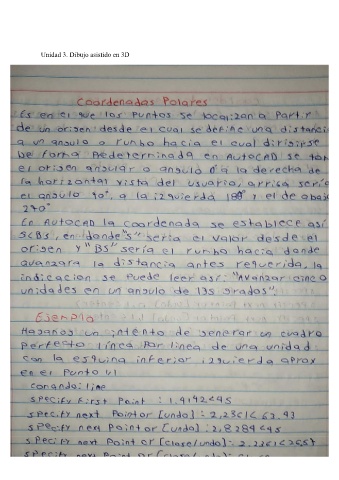 Unidad 3. Dibujo asistido en 3D
Coordenadas Polares
Es en el que los puntos se localizan a Partir
de un origen desde el cual se define una distancia
a un angulo o rumbo hacia el cual dirigirse
De forma Predeterminada en AutoCAD se
el origen angular o angulo 0° a la derecha de
la horizontal vista del usuario, arriba
el angulo 90°, a la izquierda 180° y el de abajo
270°
En AutoCAD la coordenada se establece así
en donde "S" seria el valor desde el
origen y "BS" seria el rumbo hacia donde
avanzara la distancia antes requerida, la
indicacion se puede leer así: "Avanzar cinco
unidades en un angulo de 135 grados"
Ejemplo
Hagamos un intento de generar un cuadro
perfecto línea Por línea de una unidad
con la esquina inferior izquierda aprox
en el Punto
comando: line
specify First Point : 1.4142<45
specify next Point or [undo] : 2.2361<63.43
specify next Point or [undo] : 2.8284<45
specify next Point or [close/undo] : 2.2361<